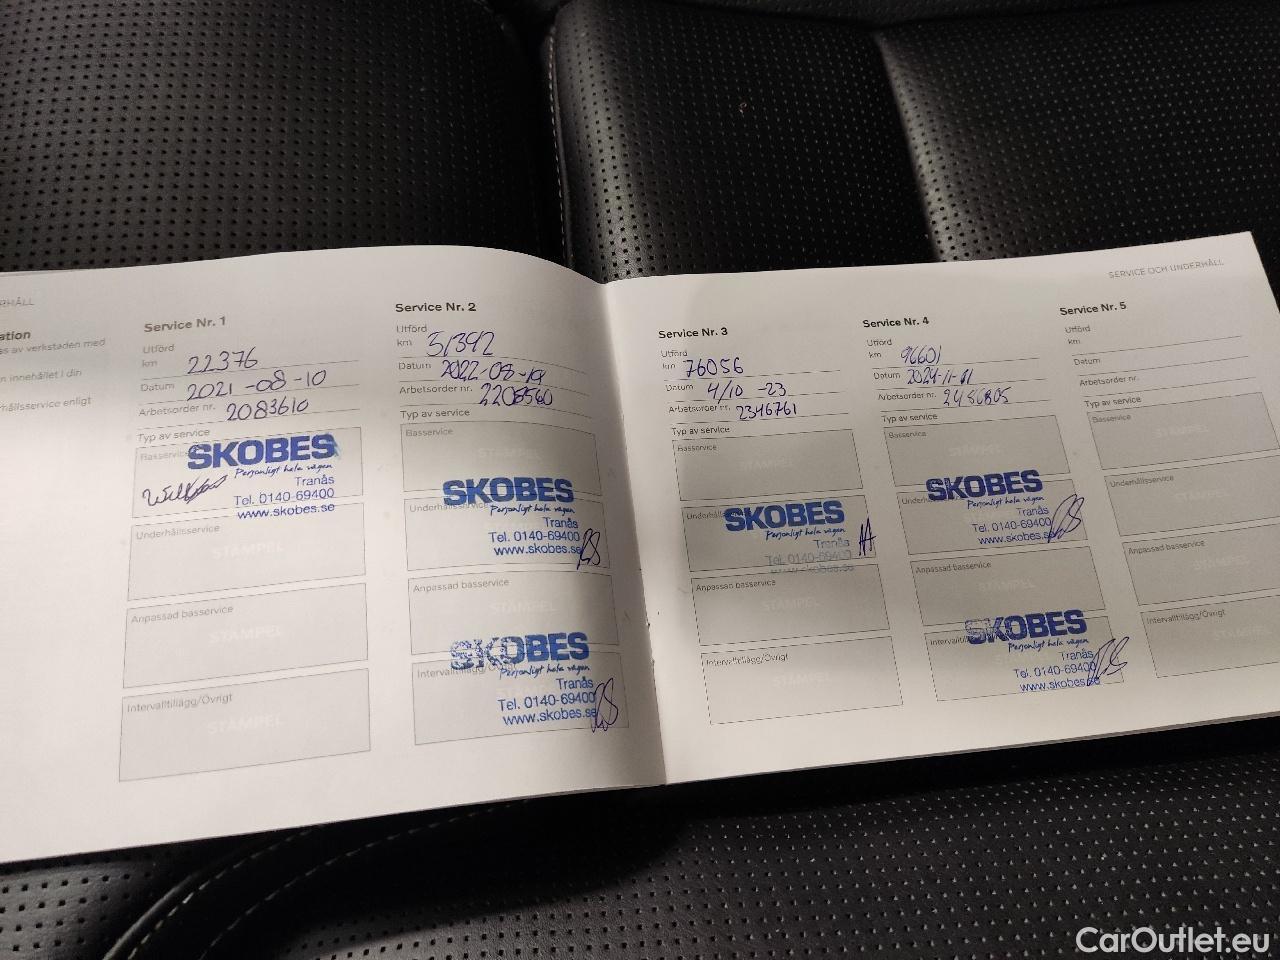 RHÅLL
ation
as av verkstaden med
n innehållet i din
hållsservice enligt
Service Nr. 1
Utförd
km 22376
Datum 2021-08-10
Arbetsorder nr. 2083610
Typ av service
Basservice
SKOBES
Personligt hela vägen
Tranås
Tel. 0140-69400
www.skobes.se
Underhållsservice
STÄMPEL
Anpassad basservice
STÄMPEL
Intervalltillägg/Övrigt
STÄMPEL
Service Nr. 2
Utförd
km 51392
Datum 2022-08-19
Arbetsorder nr. 2208560
Typ av service
Basservice
STÄMPEL
Underhållsservice
SKOBES
Personligt hela vägen
Tranås
Tel. 0140-69400
www.skobes.se
Anpassad basservice
STÄMPEL
Intervalltillägg/Övrigt
SKOBES
Personligt hela vägen
Tranås
Tel. 0140-69400
www.skobes.se
SERVICE OCH UNDERHÅLL
Service Nr. 3
Utförd
km 76056
Datum 4/10 -23
Arbetsorder nr. 2346761
Typ av service
Basservice
STÄMPEL
SKOBES
Personligt hela vägen
Tranås
Tel. 0140-69400
www.skobes.se
Anpassad basservice
STÄMPEL
Intervalltillägg/Övrigt
STÄMPEL
Service Nr. 4
Utförd
km 96601
Datum 2024-11-01
Arbetsorder nr. 2456805
Typ av service
Basservice
STÄMPEL
SKOBES
Personligt hela vägen
Tranås
Tel. 0140-69400
www.skobes.se
Anpassad basservice
STÄMPEL
SKOBES
Personligt hela vägen
Tranås
Tel. 0140-69400
www.skobes.se
Service Nr. 5
Utförd
km
Datum
Arbetsorder nr.
Typ av service
Basservice
STÄMPEL
Underhållsservice
STÄMPEL
Anpassad basservice
STÄMPEL
Intervalltillägg/Övrigt
CarOutlet.eu